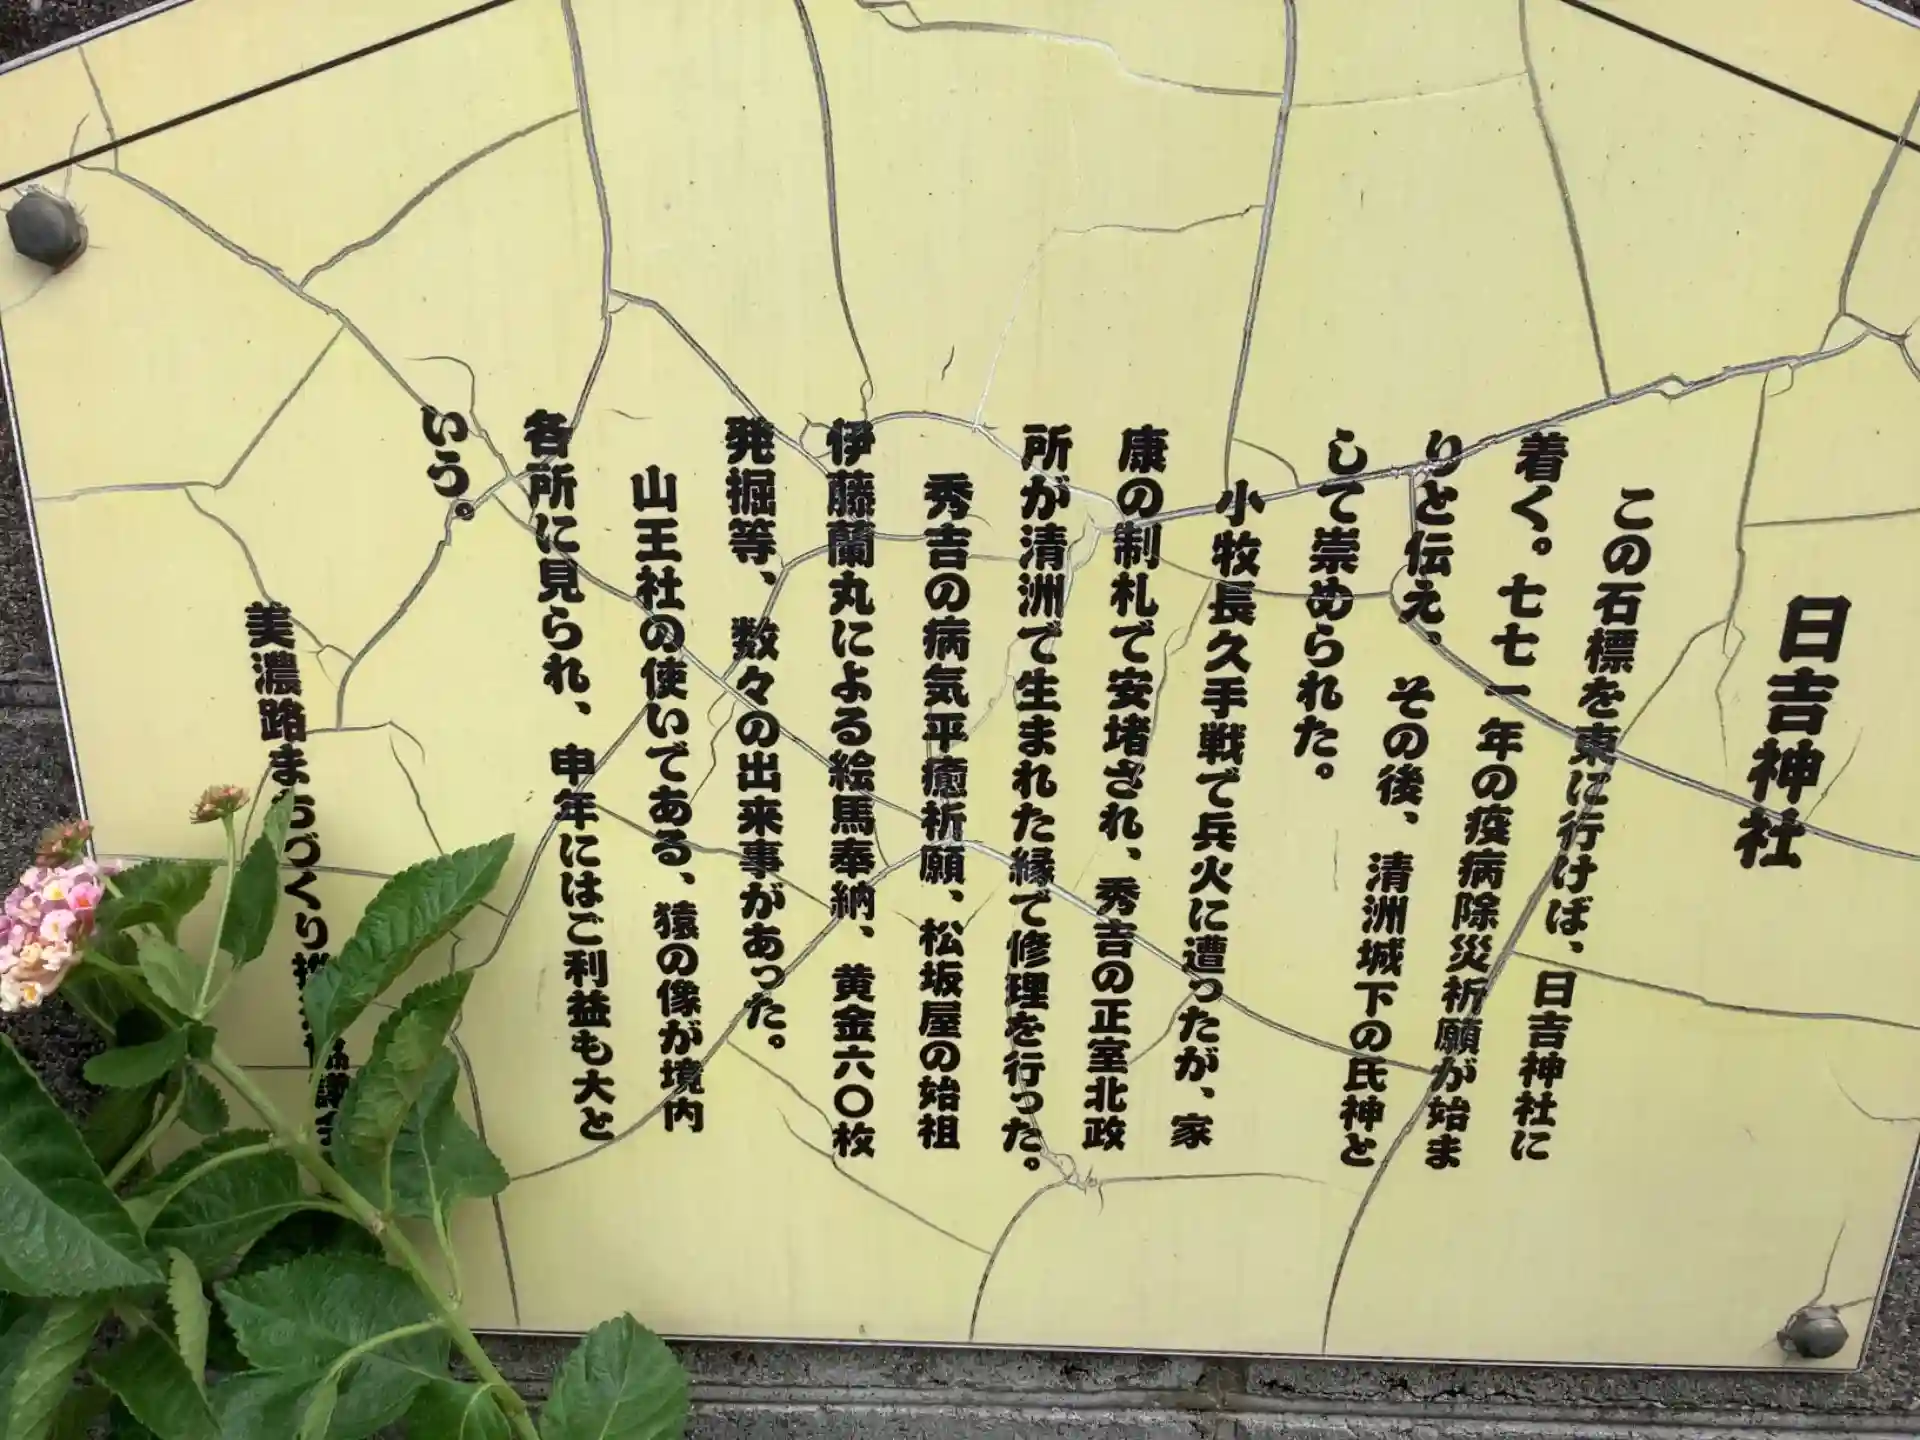 日吉神社
この石標を東に行けば、日吉神社に
着く。七七一年の疫病除災祈願が始ま
りと伝え、その後、清洲城下の氏神と
して崇められた。
小牧長久手戦で兵火に遭ったが、家
康の制札で安堵され、秀吉の正室北政
所が清洲で生まれた縁で修理を行った。
秀吉の病気平癒祈願、松坂屋の始祖
伊藤蘭丸による絵馬奉納、黄金六〇枚
発掘等、数々の出来事があった。
山王社の使いである、猿の像が境内
各所に見られ、申年にはご利益も大と
いう。
美濃路まちづくり推進協議会